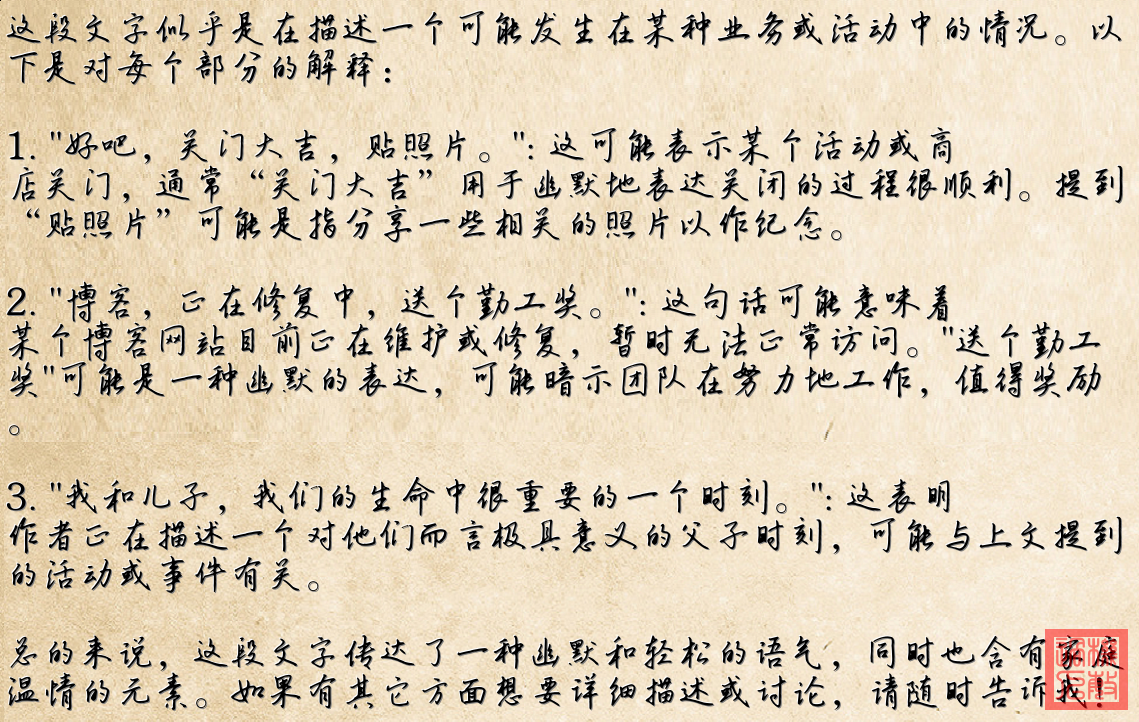 这段文字似乎是在描述一个可能发生在某种业务或活动中的情况。以
下是对每个部分的解释：
1. "好吧，关门大吉，贴照片。": 这可能表示某个活动或商
店关门，通常“关门大吉”用于幽默地表达关闭的过程很顺利。提到
“贴照片”可能是指分享一些相关的照片以作纪念。
2. "博客，正在修复中，送个勤工奖。": 这句话可能意味着
某个博客网站目前正在维护或修复，暂时无法正常访问。"送个勤工
奖"可能是一种幽默的表达，可能暗示团队在努力地工作，值得奖励
。
3. "我和儿子，我们的生命中很重要的一个时刻。": 这表明
作者正在描述一个对他们而言极具意义的父子时刻，可能与上文提到
的活动或事件有关。
总的来说，这段文字传达了一种幽默和轻松的语气，同时也含有家庭
温情的元素。如果有其它方面想要详细描述或讨论，请随时告诉我！